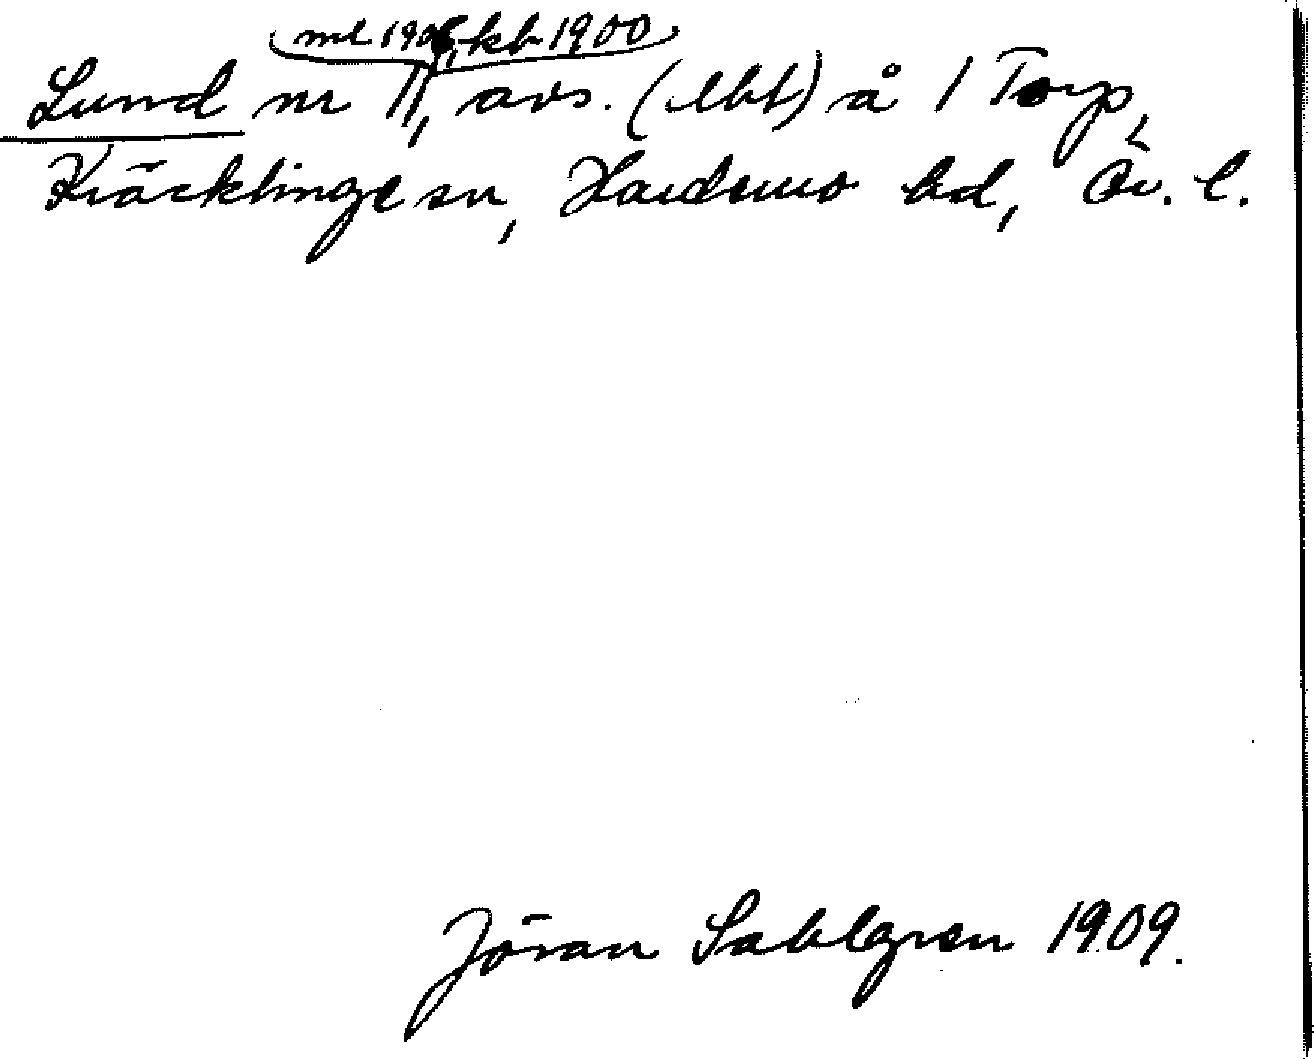 ml 1908, kb 1900
Lund nr 11, avs. (lht) å 1 Torp,
Kräcklinge sn, Hardemo hd, Ör. l.
Jöran Sahlgren 1909.